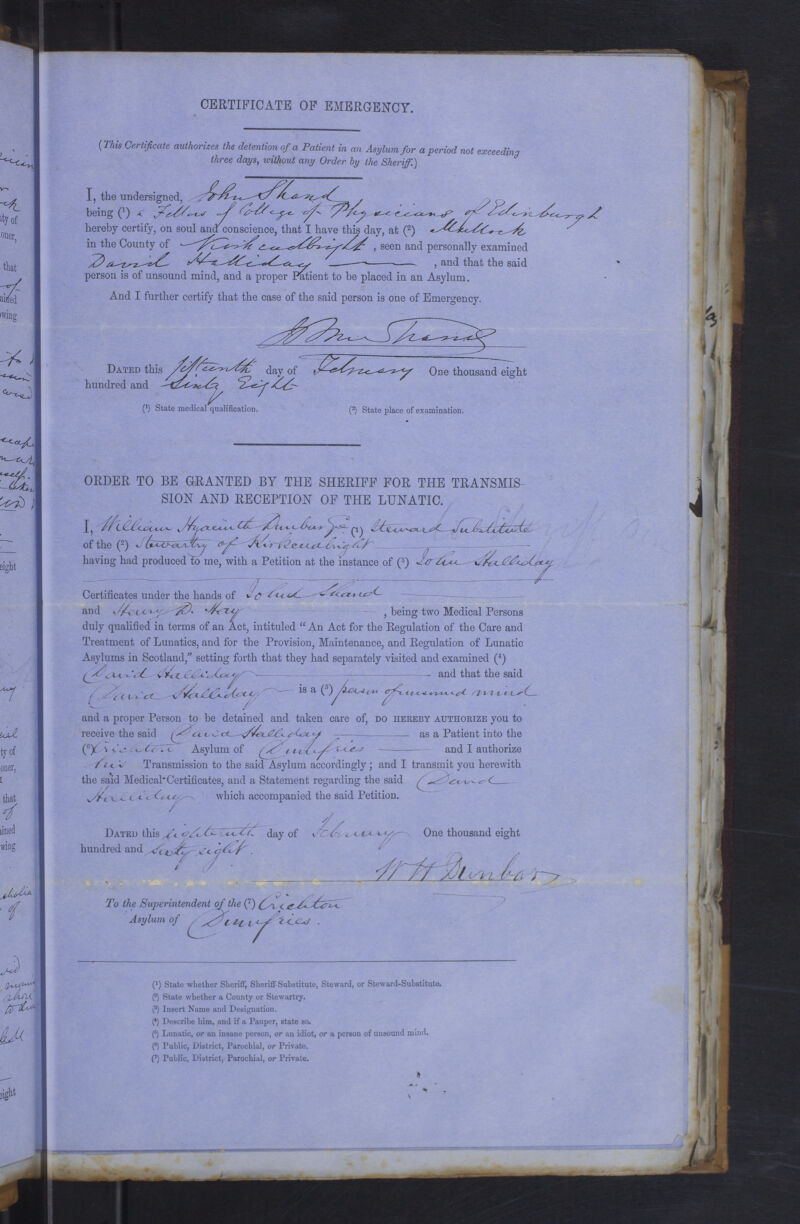 CERTIFICATE OF EMERGENCY.
(This Certificate authorizes the detention of a Patient in an Asylum for a period not exceeding
three days, without any Order by the Sheriff.)
I, the undersigned, John Shand
being (¹) a Fellow of College of Physicians of Edinburgh
hereby certify, on soul and conscience, that I have this day, at (²) Mullock
in the County of Kirkcudbright, seen and personally examined
David Halliday, and that the said
person is of unsound mind, and a proper Patient to be placed in an Asylum.
And I further certify that the case of the said person is one of Emergency.
John Shand
DATED this fifteenth day of February One thousand eight
hundred and Sixty Eight
(¹) State medical qualification. (²) State place of examination.
ORDER TO BE GRANTED BY THE SHERIFF FOR THE TRANSMIS-
SION AND RECEPTION OF THE LUNATIC.
I, William Hyacinth Dunbar (¹) Steward Substitute
of the (²) Stewartry of Kirkcudbright
having had produced to me, with a Petition at the instance of (³) John Halliday
Certificates under the hands of John Shand
and Henry D. Hay, being two Medical Persons
duly qualified in terms of an Act, intituled “An Act for the Regulation of the Care and
Treatment of Lunatics, and for the Provision, Maintenance, and Regulation of Lunatic
Asylums in Scotland,” setting forth that they had separately visited and examined (⁴)
David Halliday and that the said
David Halliday is a (⁵) person of unsound mind
and a proper Person to be detained and taken care of, DO HEREBY AUTHORIZE you to
receive the said David Halliday as a Patient into the
(⁶) Crichton Asylum of Dumfries and I authorize
his Transmission to the said Asylum accordingly; and I transmit you herewith
the said Medical Certificates, and a Statement regarding the said David
Halliday which accompanied the said Petition.
DATED this eighteenth day of February One thousand eight
hundred and sixty eight.
W H Dunbar
To the Superintendent of the (⁷) Crichton
Asylum of Dumfries.
(¹) State whether Sheriff, Sheriff-Substitute, Steward, or Steward-Substitute.
(²) State whether a County or Stewartry.
(³) Insert Name and Designation.
(⁴) Describe him, and if a Pauper, state so.
(⁵) Lunatic, or an insane person, or an idiot, or a person of unsound mind.
(⁶) Public, District, Parochial, or Private.
(⁷) Public, District, Parochial, or Private.